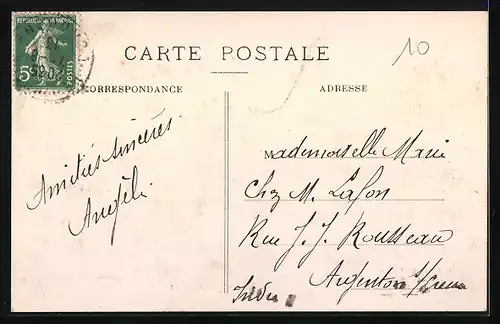 REPUBLIQUE FRANÇAISE
5c
POSTES
CARTE POSTALE
10
CORRESPONDANCE
ADRESSE
Amitiés sincères
Angèle.
Mademoiselle Marie
Chez M. Lafon
Rue J. J. Rousseau
Argenton s/Creuse
Indre